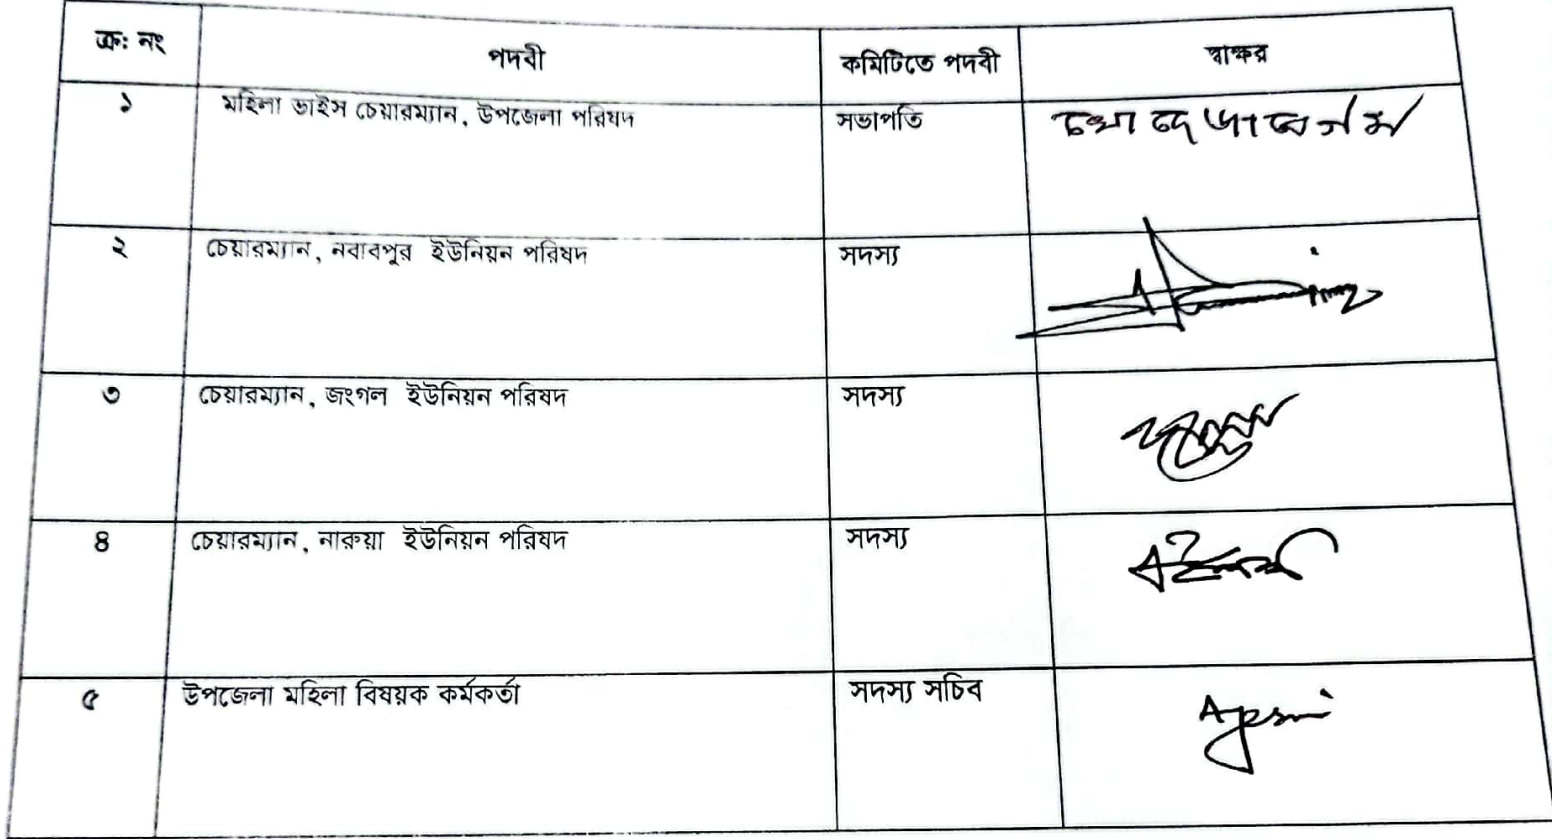 ক্র: নং পদবী কমিটিতে পদবী স্বাক্ষর
১ মহিলা ভাইস চেয়ারম্যান, উপজেলা পরিষদ সভাপতি
২ চেয়ারম্যান, নবাবপুর ইউনিয়ন পরিষদ সদস্য
৩ চেয়ারম্যান, জংগল ইউনিয়ন পরিষদ সদস্য
৪ চেয়ারম্যান, নারুয়া ইউনিয়ন পরিষদ সদস্য
৫ উপজেলা মহিলা বিষয়ক কর্মকর্তা সদস্য সচিব